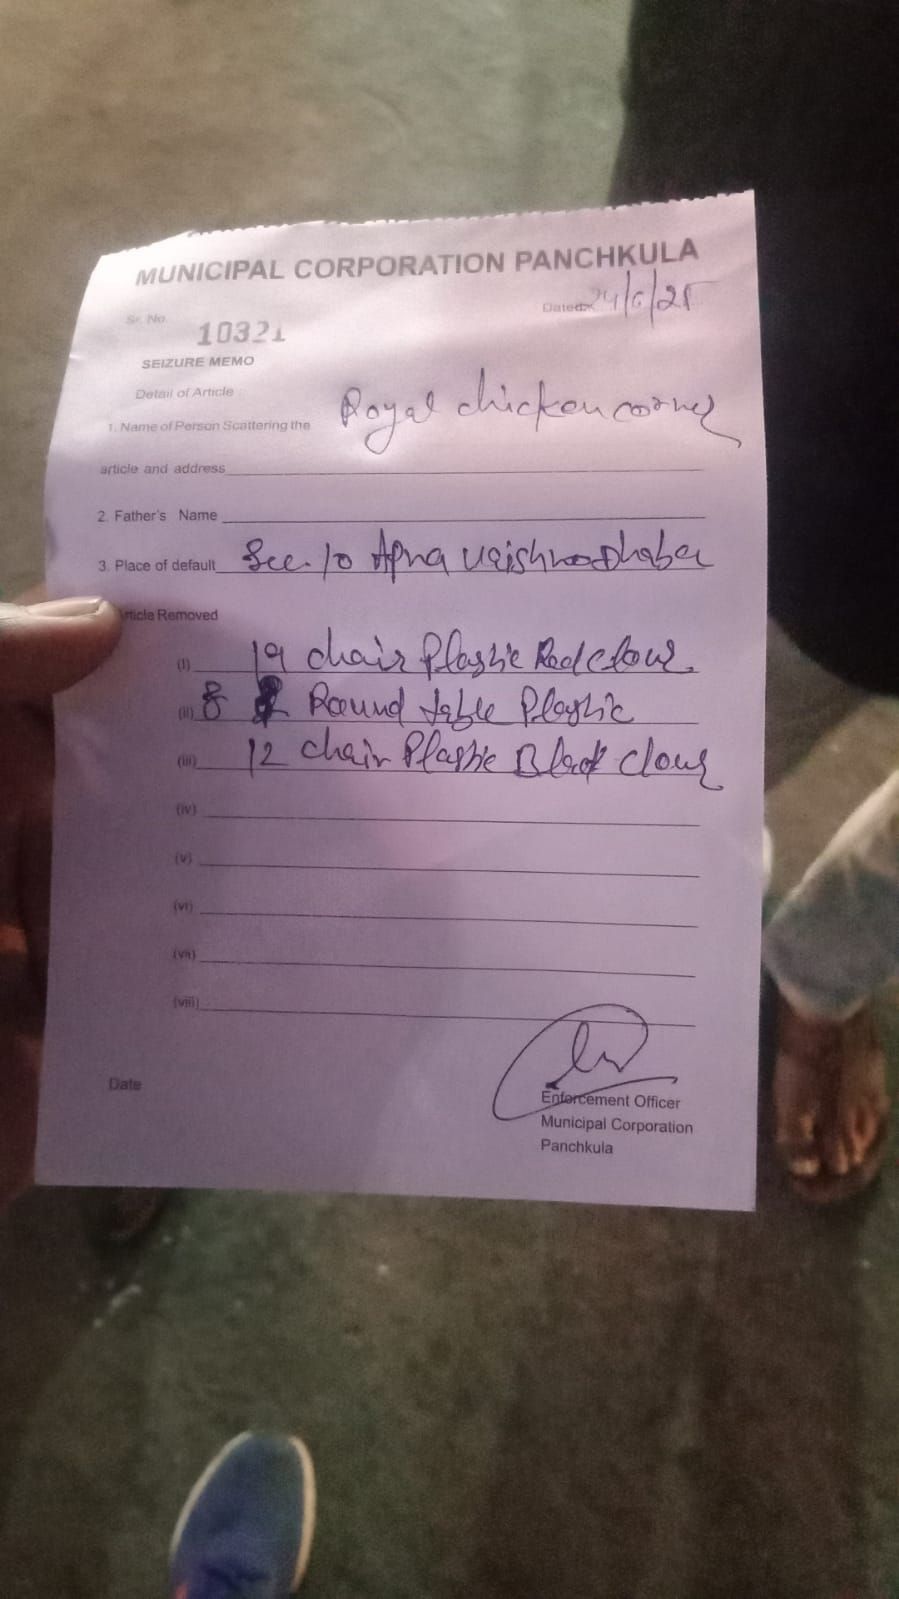 MUNICIPAL CORPORATION PANCHKULA
Dated: 24/6/25
Sr. No. 10321
SEIZURE MEMO
Detail of Article
1. Name of Person Scattering the Royal chicken corner
article and address
2. Father's Name
3. Place of default Sec. 10 Apna Vaishnoo Dhaba
Article Removed
(i) 19 chair Plastic Red clour.
(ii) 8 Round table Plastic
(iii) 12 chair Plastic Black Clour
(iv)
(v)
(vi)
(vii)
(viii)
Date
Enforcement Officer
Municipal Corporation
Panchkula